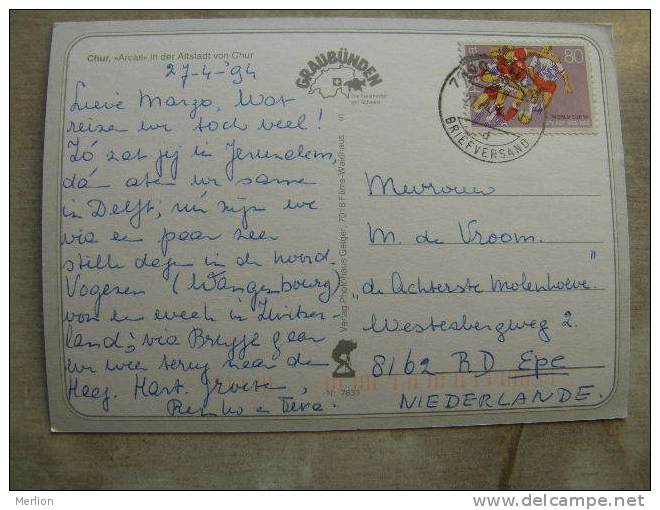 Chur, «Arcas» in der Altstadt von Chur
27-4-'94
Lieve Margo, Wat
reizen we toch veel!
Zó zat jij in Jeruzalem,
dá aten we samen
in Delft; nú zijn we
via een paar zeer
stille dagen in de noord-
Vogezen (Wangenbourg)
voor een week in Zwitser-
land; via Brugge gaan
we weer terug naar den
Haag. Hart. groeten,
Remko en
GRAUBÜNDEN
Die Ferienecke
der Schweiz
S
Verlag Photohaus Geiger, 7018 Flims-Waldhaus
Nr. 7839
80
WORLD CUP
BRIEFVERSAND
Mevrouw
M. de Vroom.
"de Achterste Molenhoeve"
Westerbergweg 2.
8162 RD Epe
NIEDERLANDE.
Merlion
www.delcampe.net